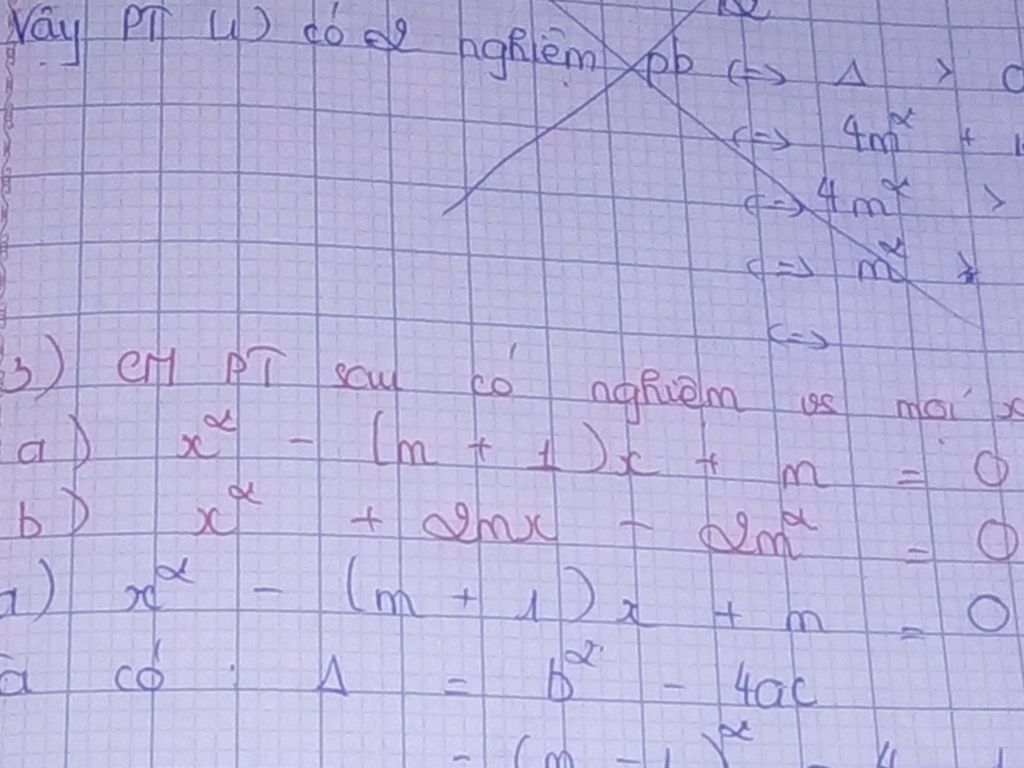 Vậy PT (1) có 2 nghiệm pb <=> Δ >
<=> 4m² +
<=> 4m² >
<=> m² >
<=>
3) CM PT sau có nghiệm vs mọi x
a) x² - (m + 1)x + m = 0
b) x² + 2mx - 2m² = 0
a) x² - (m + 1)x + m = 0
có : Δ = b² - 4ac
= (m - 1)² - 4